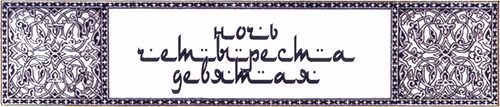 ночь
четыреста
девятая